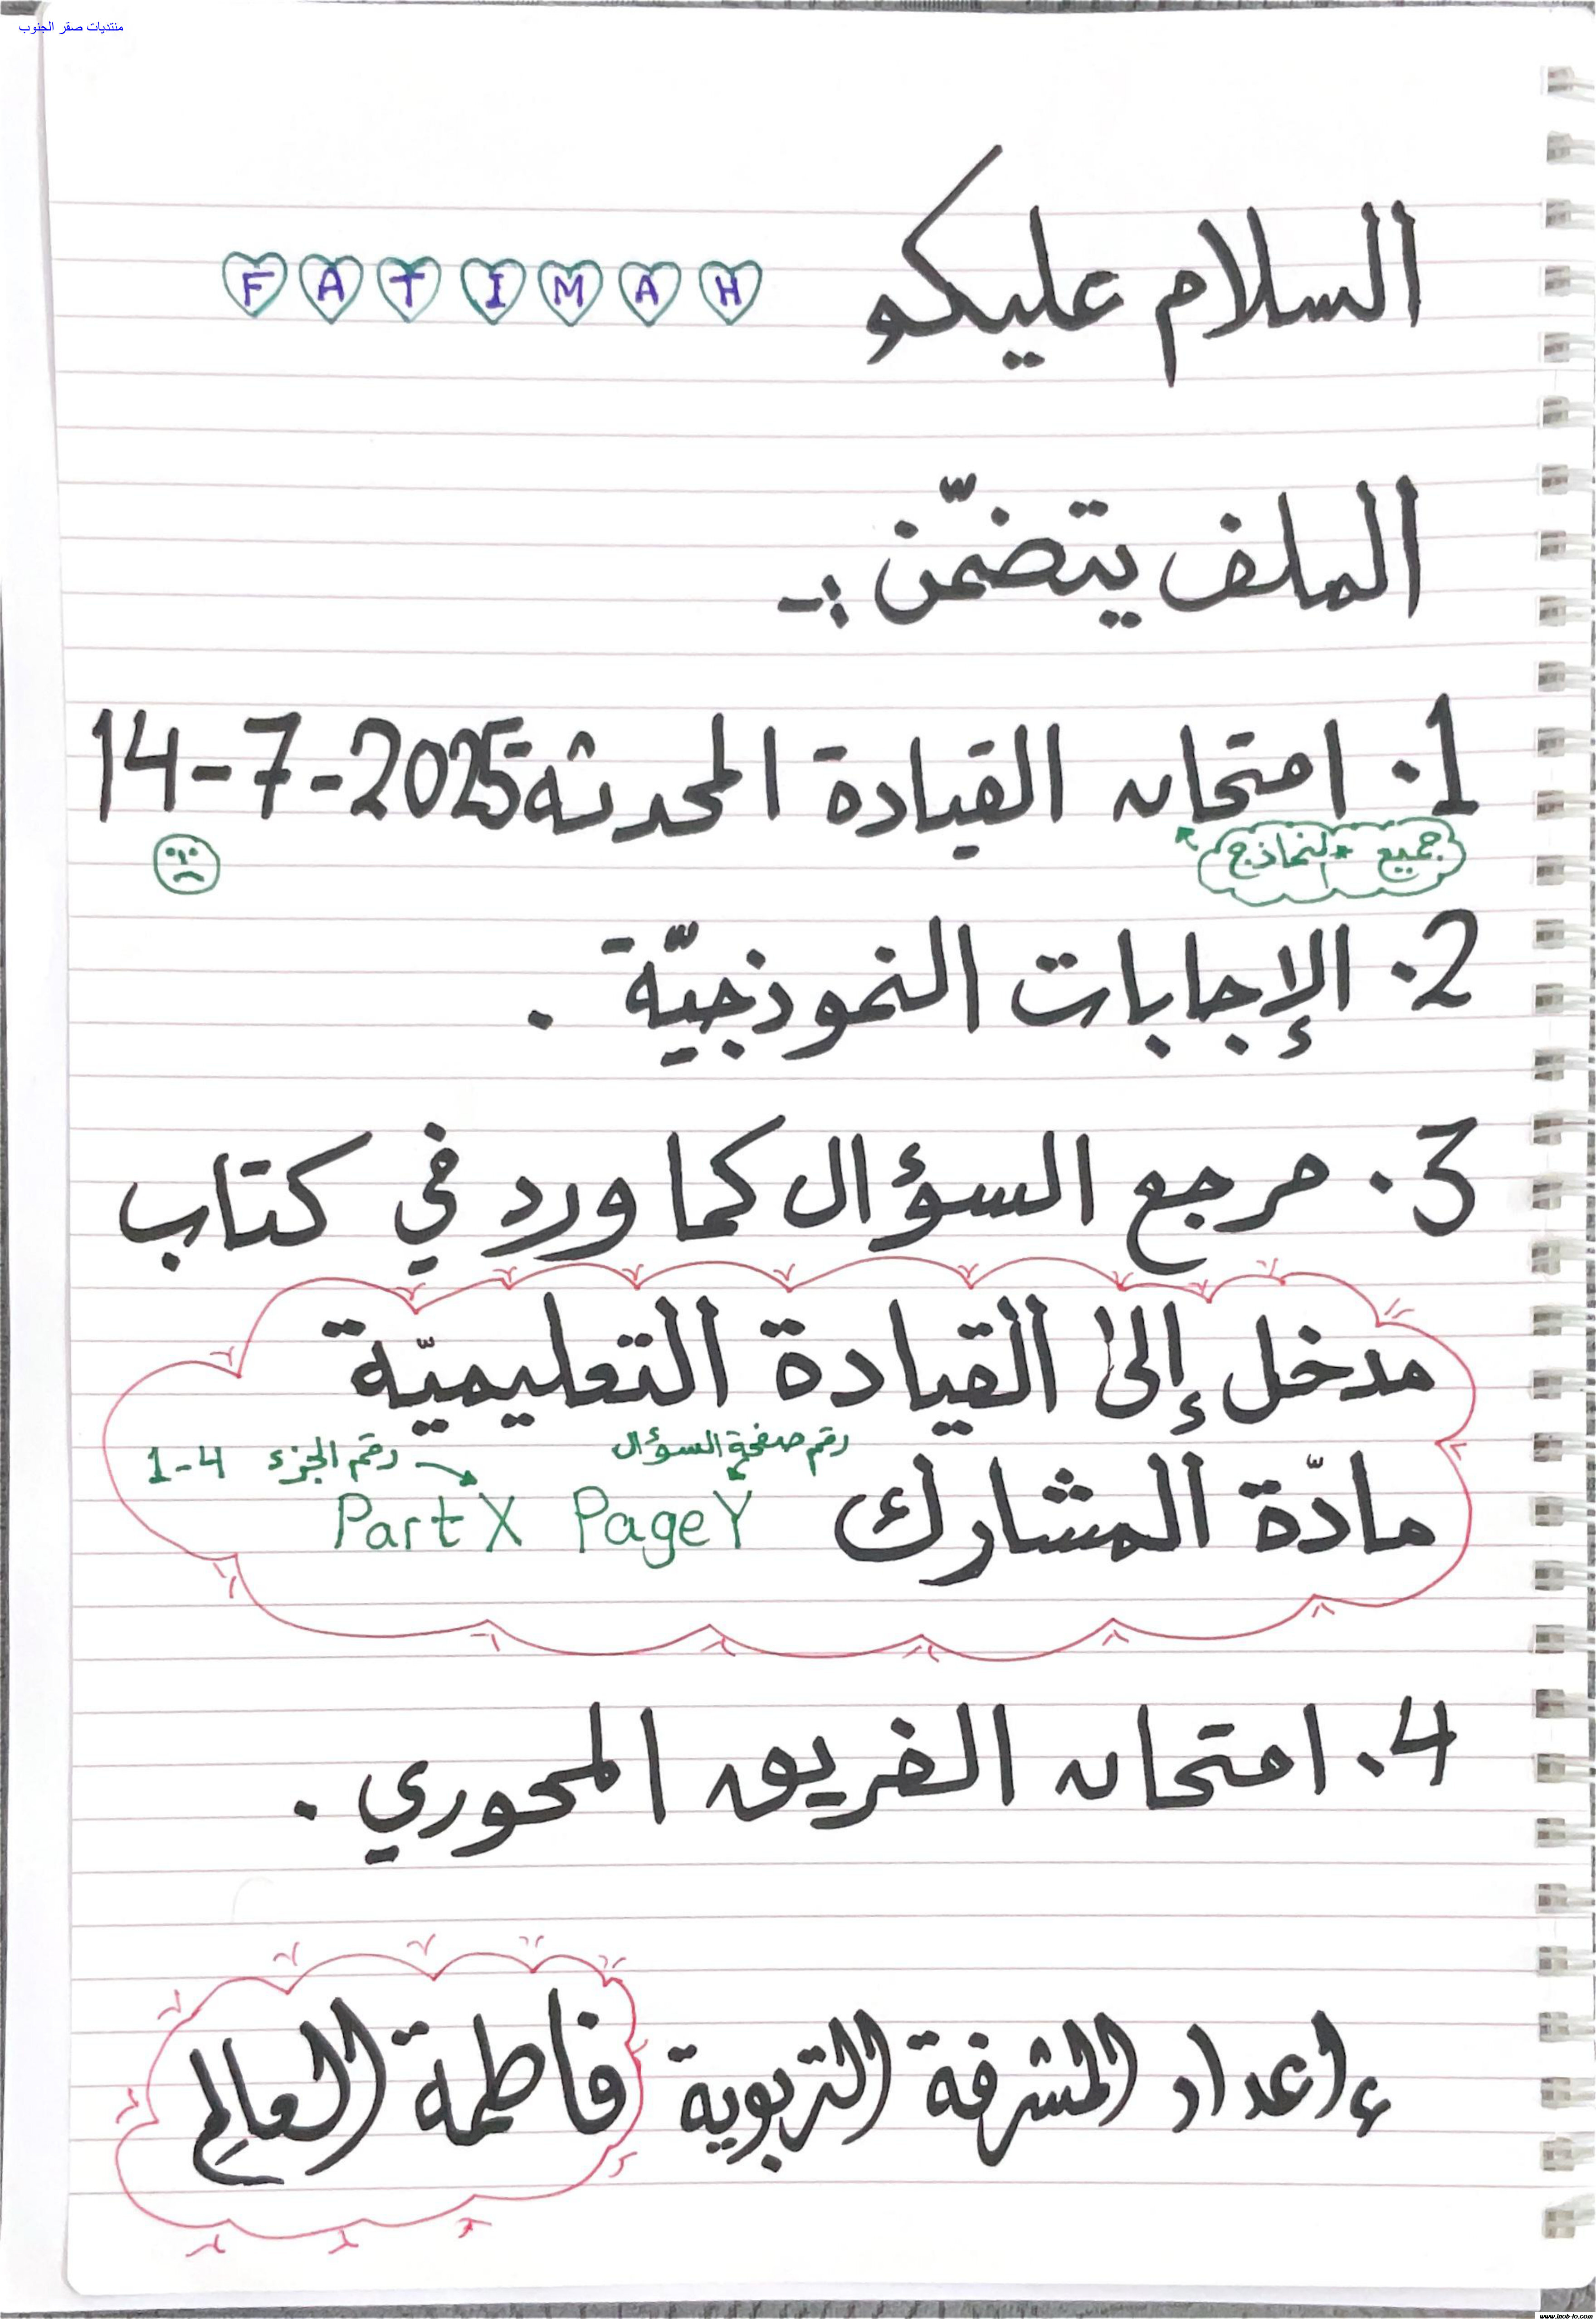 منتديات صقر الجنوب
السلام عليكم FATIMAH
الملف يتضمّن :-
1. امتحان القيادة المحدثة 14-7-2025
جميع النماذج
2. الإجابات النموذجيّة .
3. مرجع السؤال كما ورد في كتاب
مدخل إلى القيادة التعليميّة
رقم صفحة السؤال رقم الجزء 1-4
مادّة المشارك Part X Page Y
4. امتحان الفريق المحوري .
إعداد المشرفة التربوية فاطمة العالِم